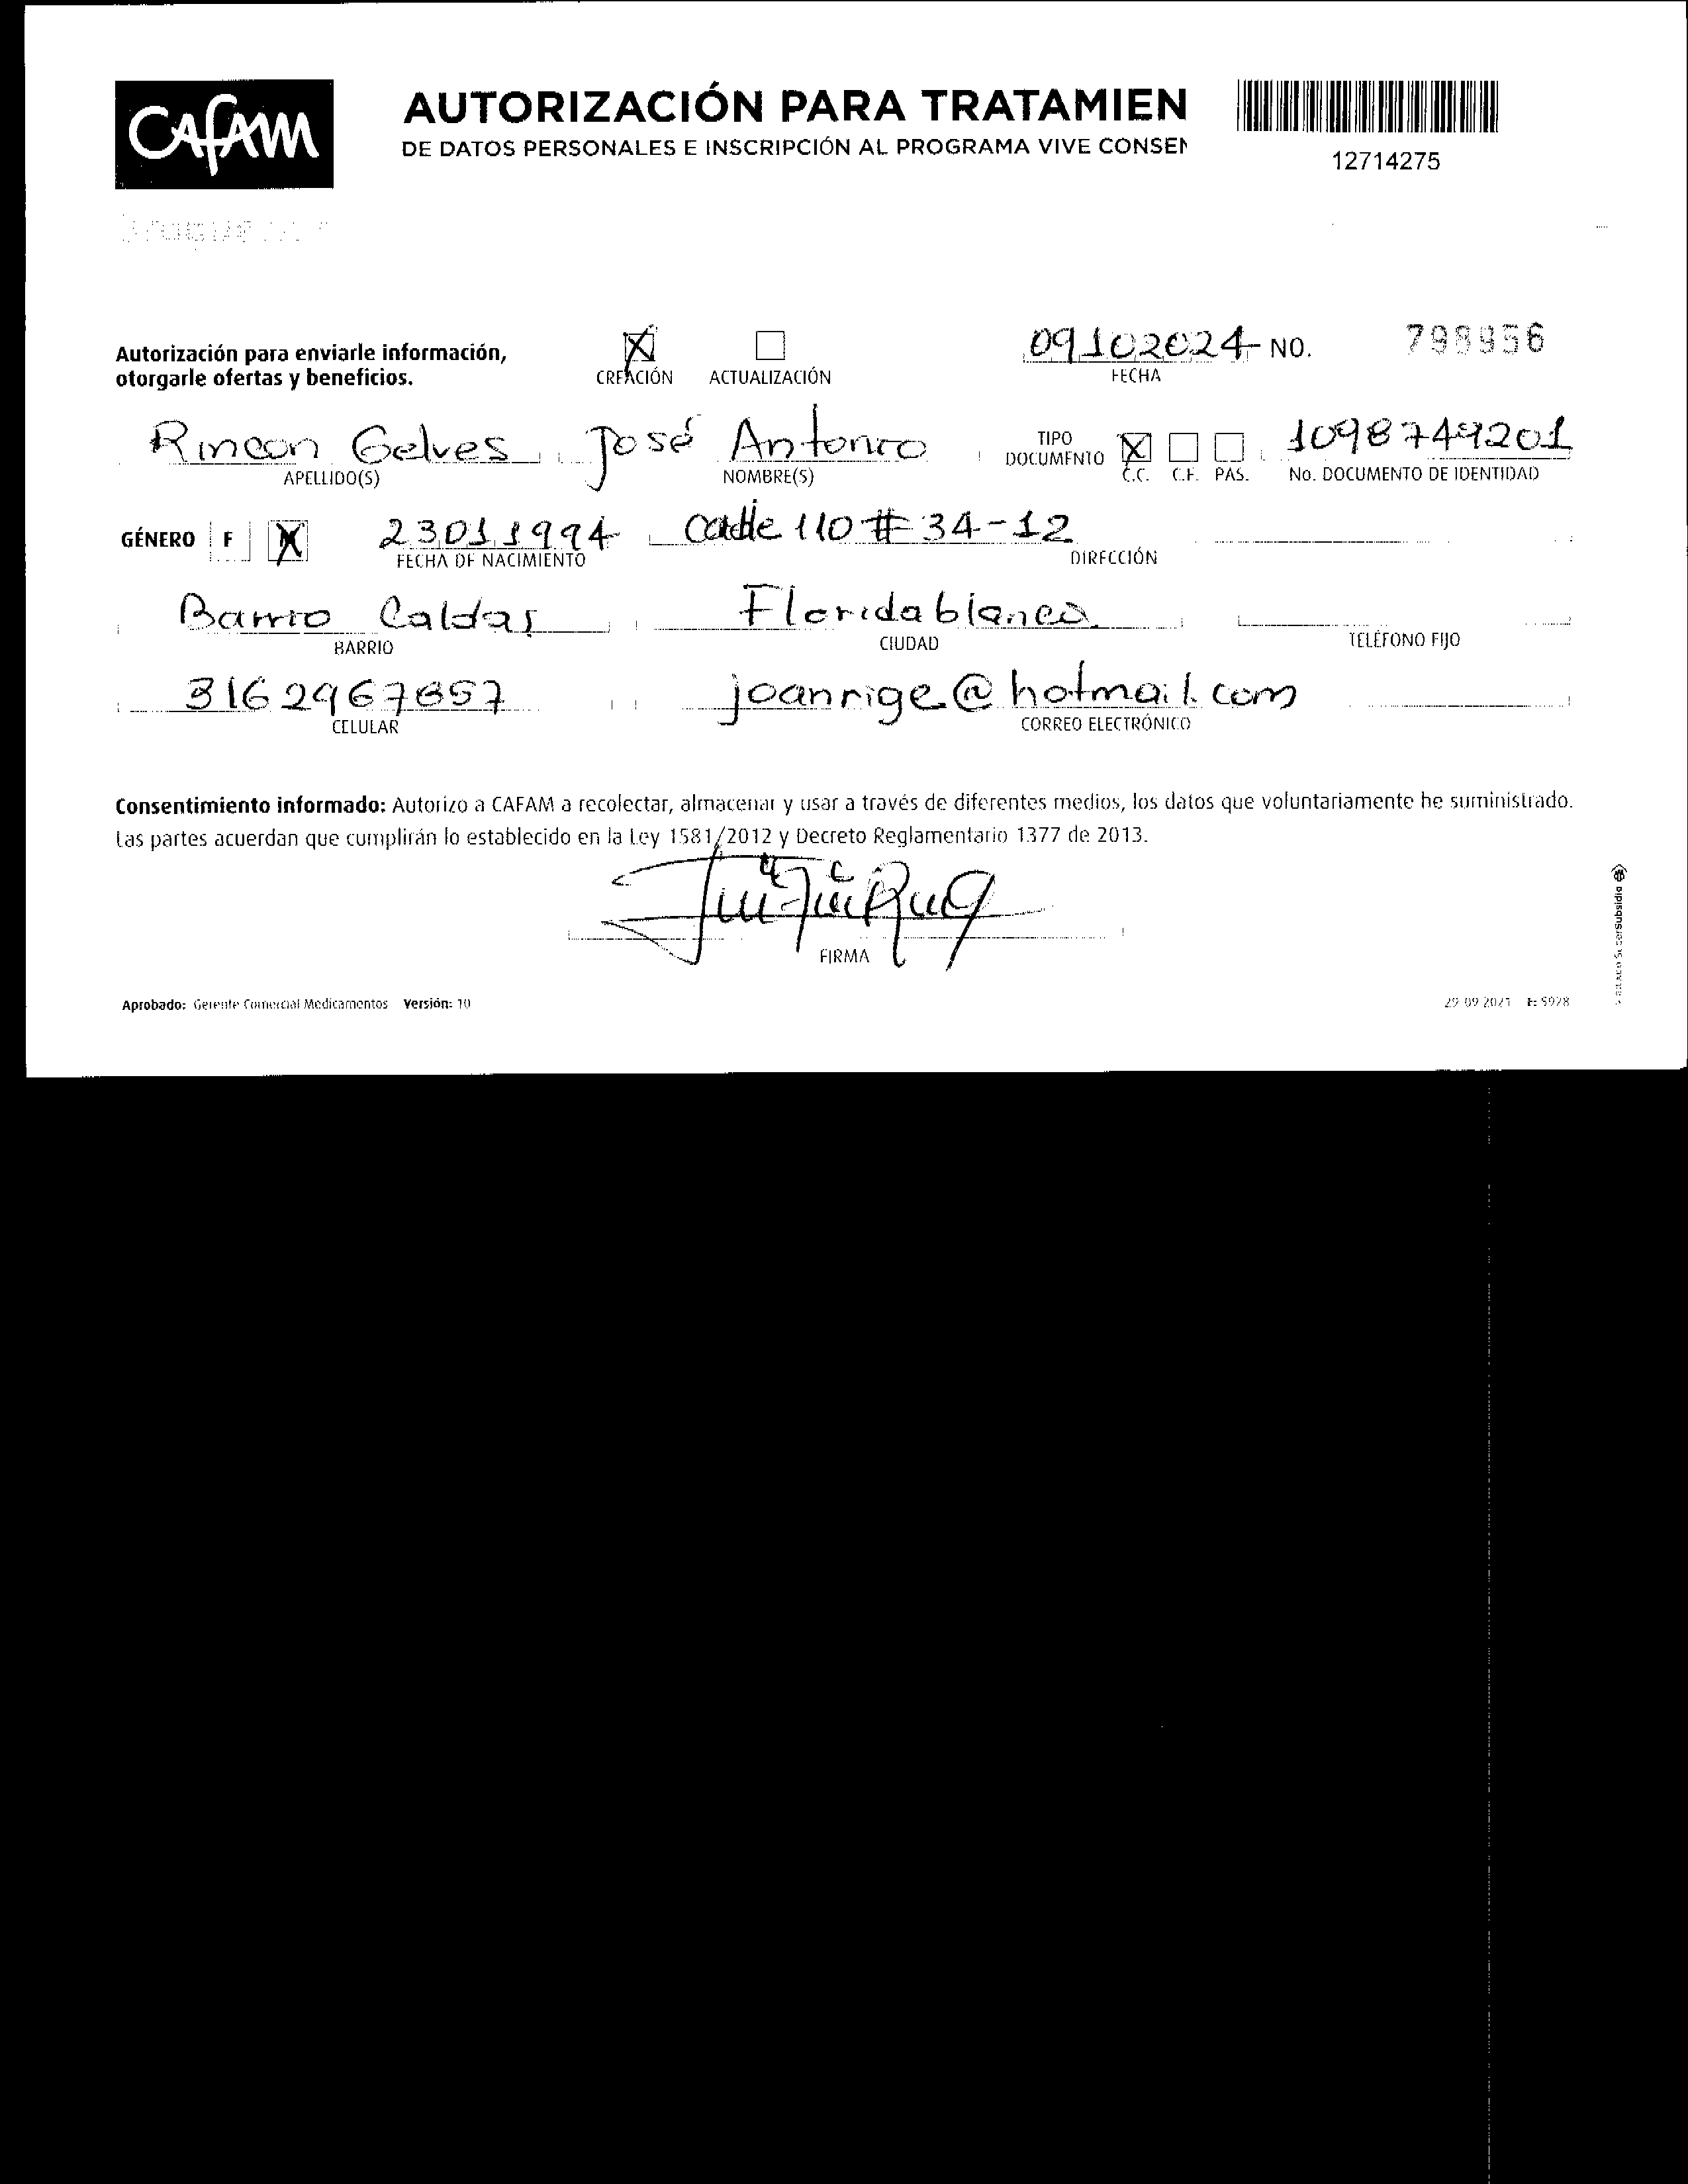 CAFAM
AUTORIZACIÓN PARA TRATAMIEN
DE DATOS PERSONALES E INSCRIPCIÓN AL PROGRAMA VIVE CONSEN
12714275
Autorización para enviarle información,
otorgarle ofertas y beneficios.
CREACIÓN ACTUALIZACIÓN
09102024 NO. 798956
FECHA
Rincon Gelves José Antonio TIPO DOCUMENTO 1098749201
APELLIDO(S) NOMBRE(S) C.C. C.E. PAS. No. DOCUMENTO DE IDENTIDAD
GÉNERO F M 23011994 calle 110 # 34-12
FECHA DE NACIMIENTO DIRECCIÓN
Barrio Caldas Floridablanca
BARRIO CIUDAD TELÉFONO FIJO
3162967857 joanrige@hotmail.com
CELULAR CORREO ELECTRÓNICO
Consentimiento informado: Autorizo a CAFAM a recolectar, almacenar y usar a través de diferentes medios, los datos que voluntariamente he suministrado.
Las partes acuerdan que cumplirán lo establecido en la Ley 1581/2012 y Decreto Reglamentario 1377 de 2013.
FIRMA
Aprobado: Gerente Comercial Medicamentos Versión: 10
29 09 2021 F: 5928
SuperSubsidio